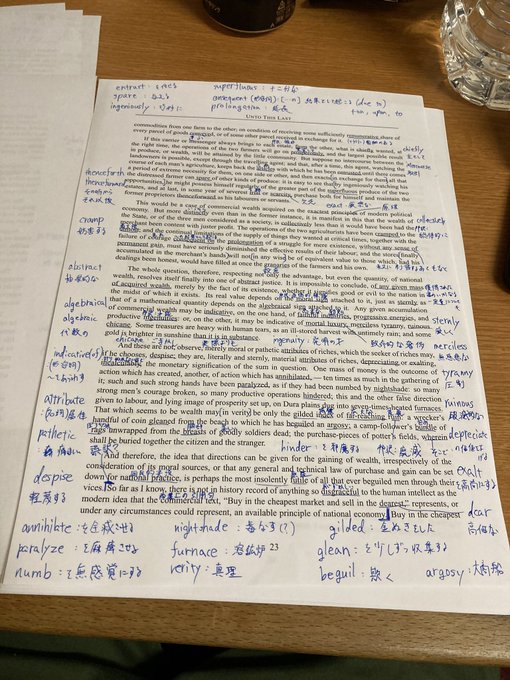 entrust : を任せる superfluous : 十二分な
spare : 与える consequent (形容詞): [~の] 結果として起こる (due to)
ingeniously : 巧妙に prolongation : 延長
UNTO THIS LAST
commodities from one farm to the other, on condition of receiving some sufficiently remunerative share of
every parcel of goods conveyed, or of some other parcel received in exchange for it.
If this carrier or messenger always brings to each estate, from the other, what is chiefly wanted, at
the right time, the operations of the two farmers will go on prosperously, and the largest possible result
in produce, or wealth, will be attained by the little community. But suppose no intercourse between the
landowners is possible, except through the travelling agent; and that, after a time, this agent, watching the
course of each man's agriculture, keeps back the articles with which he has been entrusted until there comes
a period of extreme necessity for them, on one side or other, and then exacts in exchange for them all that
the distressed farmer can spare of other kinds of produce: it is easy to see that by ingeniously watching his
opportunities, he might possess himself regularly of the greater part of the superfluous produce of the two
estates, and at last, in some year of severest trial or scarcity, purchase both for himself and maintain the
former proprietors thenceforward as his labourers or servants.
This would be a case of commercial wealth acquired on the exactest principles of modern political
economy. But more distinctly even in this than in the former instance, it is manifest that the wealth of
the State, or of the three men considered as a society, is collectively less than it would have been had the
merchant been content with juster profit. The operations of the two agriculturists have been cramped to the
utmost; and the continual limitations of the supply of things they wanted at critical times, together with the
failure of courage consequent on the prolongation of a struggle for mere existence, without any sense of
permanent gain, must have seriously diminished the effective results of their labour; and the stores finally
accumulated in the merchant's hands will not in any wise be of equivalent value to those which, had his
dealings been honest, would have filled at once the granaries of the farmers and his own.
The whole question, therefore, respecting not only the advantage, but even the quantity, of national
wealth, resolves itself finally into one of abstract justice. It is impossible to conclude, of any given mass
of acquired wealth, merely by the fact of its existence, whether it signifies good or evil to the nation in
the midst of which it exists. Its real value depends on the moral sign attached to it, just as sternly as
that of a mathematical quantity depends on the algebraical sign attached to it. Any given accumulation
of commercial wealth may be indicative, on the one hand, of faithful industries, progressive energies, and
productive ingenuities: or, on the other, it may be indicative of mortal luxury, merciless tyranny, ruinous
chicane. Some treasures are heavy with human tears, as an ill-stored harvest with untimely rain; and some
gold is brighter in sunshine than it is in substance.
And these are not, observe, merely moral or pathetic attributes of riches, which the seeker of riches may,
if he chooses, despise; they are, literally and sternly, material attributes of riches, depreciating or exalting,
incalculably, the monetary signification of the sum in question. One mass of money is the outcome of
action which has created, another, of action which has annihilated, — ten times as much in the gathering of
it; such and such strong hands have been paralyzed, as if they had been numbed by nightshade: so many
strong men's courage broken, so many productive operations hindered; this and the other false direction
given to labour, and lying image of prosperity set up, on Dura plains dug into seven-times-heated furnaces.
That which seems to be wealth may in verity be only the gilded index of far-reaching ruin; a wrecker's
handful of coin gleaned from the beach to which he has beguiled an argosy; a camp-follower's bundle of
rags unwrapped from the breasts of goodly soldiers dead; the purchase-pieces of potter's fields, wherein
shall be buried together the citizen and the stranger.
And therefore, the idea that directions can be given for the gaining of wealth, irrespectively of the
consideration of its moral sources, or that any general and technical law of purchase and gain can be set
down for national practice, is perhaps the most insolently futile of all that ever beguiled men through their
vices. So far as I know, there is not in history record of anything so disgraceful to the human intellect as the
modern idea that the commercial text, "Buy in the cheapest market and sell in the dearest," represents, or
under any circumstances could represent, an available principle of national economy. Buy in the cheapest
thenceforth
thenceforward
それ以後
cramp
妨害する
abstract
抽象的な
algebraical
algebraic
代数の
indicative(of)
(形容詞)
attribute
(名詞)属性
pathetic
despise
軽蔑する
chiefly
主として
collectively
sternly
厳しく
merciless
無慈悲な
tyranny
圧制
ruinous
破滅的な
depreciate
exalt
dear
高価な
hinder : を邪魔する
annihilate : を全滅させる nightshade : 毒なす(?) gilded : 金ぬきをした
paralyze : を麻痺させる furnace : 溶鉱炉 23 glean : を少しずつ収集する
numb : を無感覚にする verity : 真理 beguil : 欺く argosy : 大商船